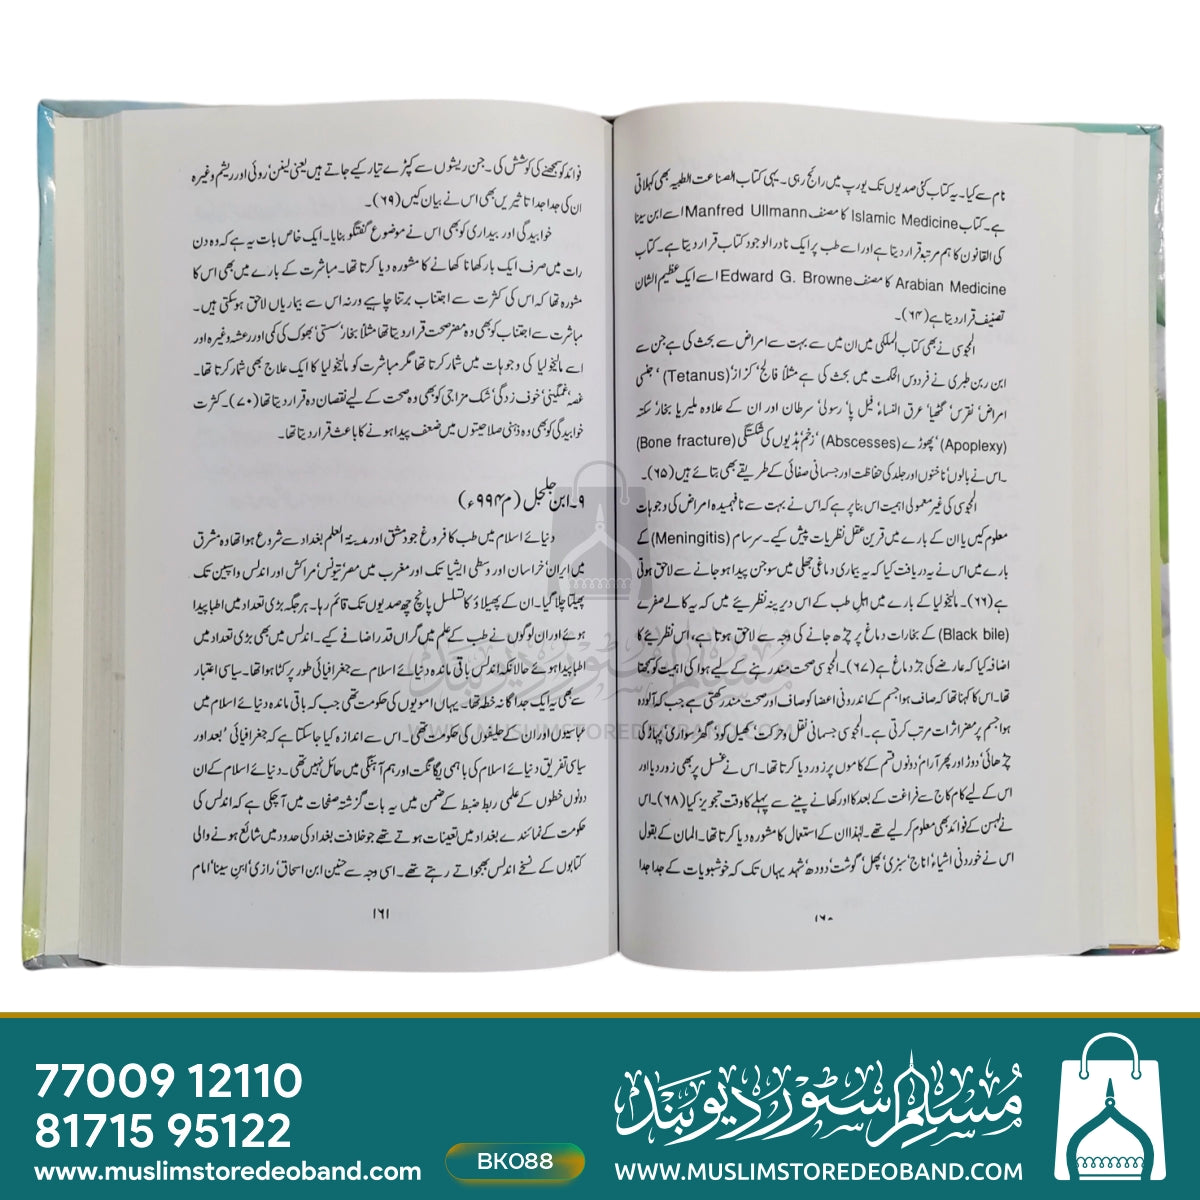 نام سے کیا۔ یہ کتاب کئی صدیوں تک یورپ میں رائج رہی۔ یہی کتاب الصناعت الطبیہ بھی کہلاتی
ہے۔ کتاب Islamic Medicine کا مصنف Manfred Ullmann اسے ابن سینا
کی القانون کا ہم مرتبہ قرار دیتا ہے اور اسے طب پر ایک نادر الوجود کتاب قرار دیتا ہے۔ کتاب
Arabian Medicine کا مصنف Edward G. Browne اسے ایک عظیم الشان
تصنیف قرار دیتا ہے (۶۴)۔
المجوسی نے بھی کتاب الملکی میں ان میں سے بہت سے امراض سے بحث کی ہے جن سے
ابن ربن طبری نے فردوس الحکمت میں بحث کی ہے مثلاً فالج‘ کزاز‘ (Tetanus) ‘ جنسی
امراض‘ نقرس‘ گٹھیا‘ عرق النساء‘ فیل پا‘ رسولی‘ سرطان اور ان کے علاوہ ملیریا بخار‘ سکتہ
(Apoplexy) ‘ پھوڑے (Abscesses) ‘ زخم‘ ہڈیوں کی شکستگی (Bone fracture)
۔ اس نے بالوں‘ ناخنوں اور جلد کی حفاظت اور جسمانی صفائی کے طریقے بھی بتائے ہیں (۶۵)۔
المجوسی کی غیر معمولی اہمیت اس بنا پر ہے کہ اس نے بہت سے نافہمیدہ امراض کی وجوہات
معلوم کیں یا ان کے بارے میں قرین عقل نظریات پیش کیے۔ سرسام (Meningitis) کے
بارے میں اس نے یہ دریافت کیا کہ یہ بیماری دماغی جھلی میں سوجن پیدا ہو جانے سے لاحق ہوتی
ہے (۶۶)۔ مالیخولیا کے بارے میں اہل طب کے اس دیرینہ نظریئے میں کہ یہ کالے صفرے
(Black bile) کے بخارات دماغ پر چڑھ جانے کی وجہ سے لاحق ہوتا ہے، اس نظریئے کا
اضافہ کیا کہ عارضے کی جڑ دماغ ہے (۶۷)۔ المجوسی صحت مند رہنے کے لیے ہوا کی اہمیت کو سمجھتا
تھا۔ اس کا کہنا تھا کہ صاف ہوا جسم کے اندرونی اعضا کو صاف اور صحت مند رکھتی ہے جب کہ آلودہ
ہوا جسم پر مضر اثرات مرتب کرتی ہے۔ المجوسی جسمانی نقل و حرکت‘ کھیل کود‘ گھڑ سواری‘ پہاڑی
چڑھائی‘ دوڑ اور پھر آرام‘ دونوں قسم کے کاموں پر زور دیا کرتا تھا۔ اس نے غسل پر بھی زور دیا اور
اس کے لیے کام کاج سے فراغت کے بعد کا اور کھانے پینے سے پہلے کا وقت تجویز کیا (۶۸)۔ اس
نے لہسن کے فوائد بھی معلوم کر لیے تھے۔ لہٰذا ان کے استعمال کا مشورہ دیا کرتا تھا۔ المان کے بقول
اس نے خوردنی اشیاء‘ اناج‘ سبزی‘ پھل‘ گوشت‘ دودھ‘ شہد یہاں تک کہ خوشبویات کے جدا جدا
۱۶۰
فوائد کو سمجھنے کی کوشش کی۔ جن ریشوں سے کپڑے تیار کیے جاتے ہیں یعنی لینن‘ روئی اور ریشم وغیرہ
ان کی جدا جدا تاثیریں بھی اس نے بیان کیں (۶۹)۔
خوابیدگی اور بیداری کو بھی اس نے موضوع گفتگو بنایا۔ ایک خاص بات یہ ہے کہ وہ دن
رات میں صرف ایک بار کھانا کھانے کا مشورہ دیا کرتا تھا۔ مباشرت کے بارے میں بھی اس کا
مشورہ تھا کہ اس کی کثرت سے اجتناب برتنا چاہیے ورنہ اس سے بیماریاں لاحق ہو سکتی ہیں۔
مباشرت سے اجتناب کو بھی وہ مضر صحت قرار دیتا تھا مثلاً بخار‘ سستی‘ بھوک کی کمی اور رعشہ وغیرہ اور
اسے مالیخولیا کی وجوہات میں شمار کرتا تھا مگر مباشرت کو مالیخولیا کا ایک علاج بھی شمار کرتا تھا۔
غصہ‘ غمگینی‘ خوف زدگی‘ شک مزاجی کو بھی وہ صحت کے لیے نقصان دہ قرار دیتا تھا (۷۰)۔ کثرت
خوابیدگی کو بھی وہ ذہنی صلاحیتوں میں ضعف پیدا ہونے کا باعث قرار دیتا تھا۔
۹۔ ابن جلجل (م ۹۹۴ء)
دنیائے اسلام میں طب کا فروغ جو دمشق اور مدینۃ العلم بغداد سے شروع ہوا تھا وہ مشرق
میں ایران‘ خراسان اور وسطی ایشیا تک اور مغرب میں مصر‘ تیونس‘ مراکش اور اندلس و اسپین تک
پھیلتا چلا گیا۔ ان کے پھیلاؤ کا تسلسل پانچ چھ صدیوں تک قائم رہا۔ ہر جگہ بڑی تعداد میں اطبا پیدا
ہوئے اور ان لوگوں نے طب کے علم میں گراں قدر اضافے کیے۔ اندلس میں بھی بڑی تعداد میں
اطبا پیدا ہوئے حالانکہ اندلس باقی ماندہ دنیائے اسلام سے جغرافیائی طور پر کٹا ہوا تھا۔ سیاسی اعتبار
سے بھی یہ ایک جداگانہ خطہ تھا۔ یہاں امویوں کی حکومت تھی جب کہ باقی ماندہ دنیائے اسلام میں
عباسیوں اور ان کے حلیفوں کی حکومت تھی۔ اس سے اندازہ کیا جا سکتا ہے کہ جغرافیائی‘ بعد اور
سیاسی تفریق دنیائے اسلام کی باہمی یگانگت اور ہم آہنگی میں حائل نہیں تھی۔ دنیائے اسلام کے ان
دونوں خطوں کے علمی ربط ضبط کے ضمن میں یہ بات گزشتہ صفحات میں آچکی ہے کہ اندلس کی
حکومت کے نمائندے بغداد میں تعینات ہوتے تھے جو خلافت بغداد کی حدود میں شائع ہونے والی
کتابوں کے نسخے اندلس بھجواتے رہتے تھے۔ اسی وجہ سے حنین ابن اسحاق‘ رازی‘ ابن سینا‘ امام
۱۶۱
مسلم سٹور دیوبند
WWW.MUSLIMSTOREDEOBAND.COM
77009 12110
81715 95122
www.muslimstoredeoband.com
BK088
مسلم سٹور دیوبند
WWW.MUSLIMSTOREDEOBAND.COM